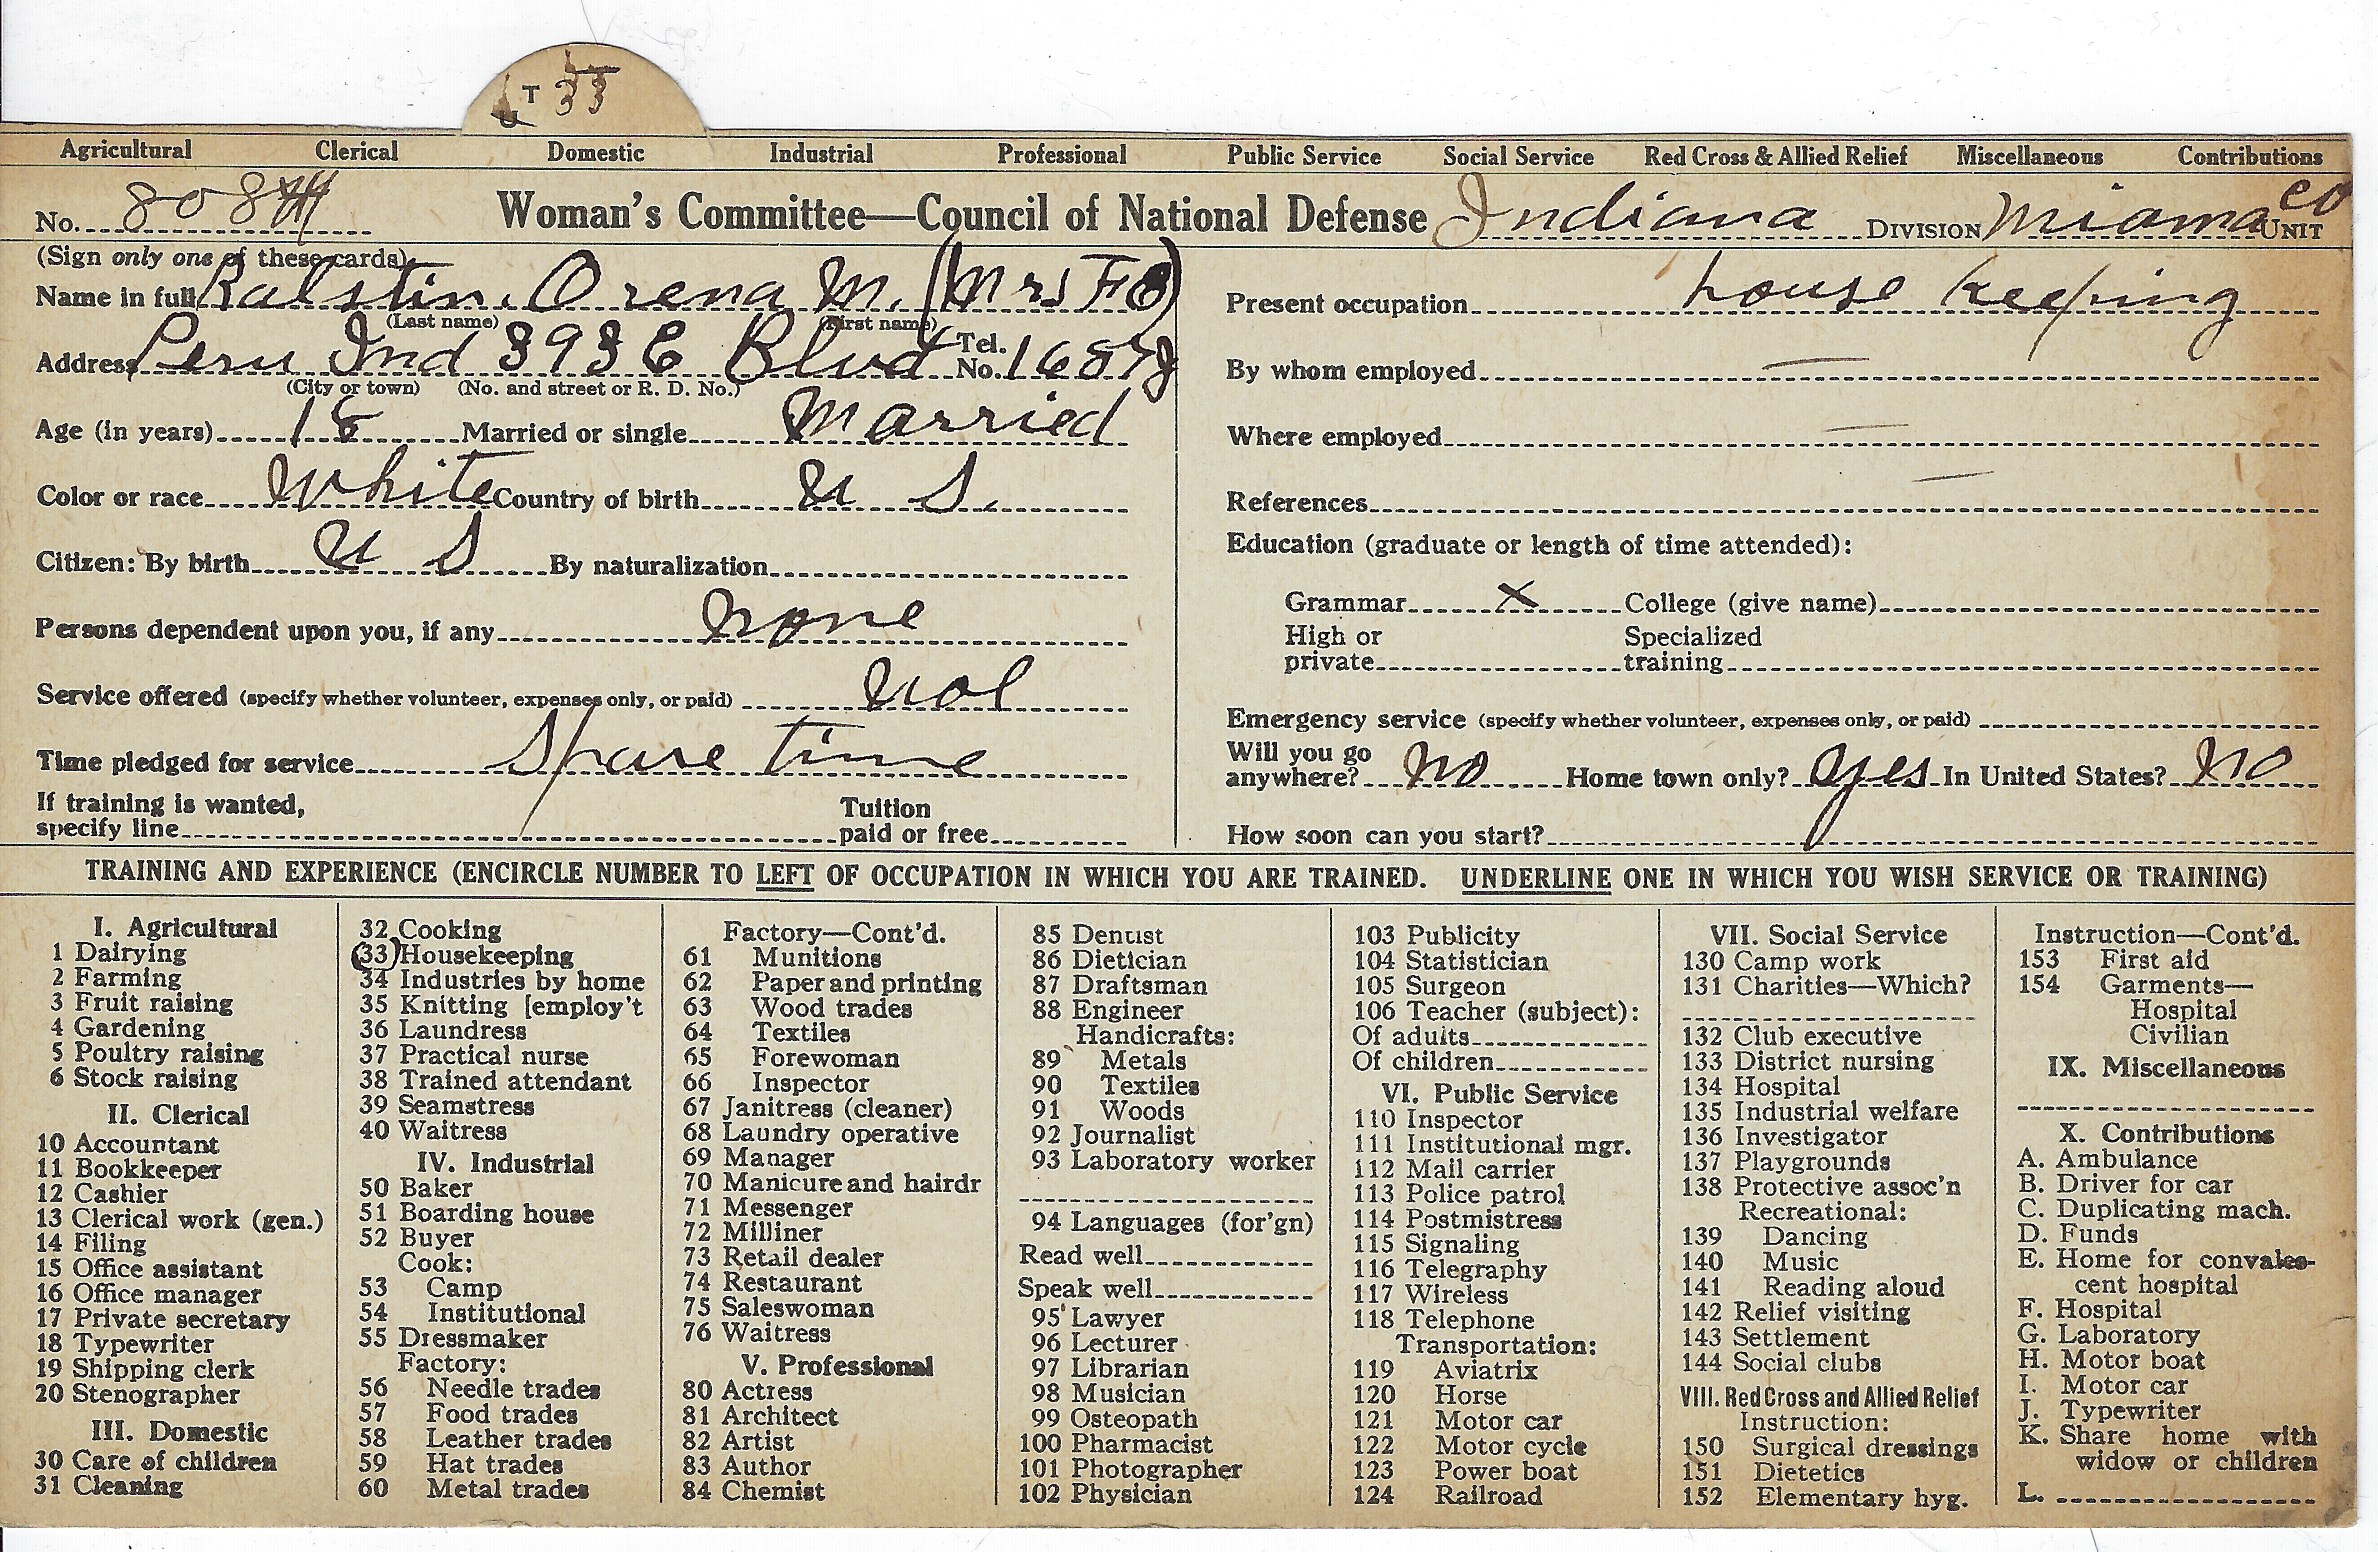 T 33
Agricultural Clerical Domestic Industrial Professional Public Service Social Service Red Cross & Allied Relief Miscellaneous Contributions
No. 808 Woman's Committee—Council of National Defense Indiana DIVISION Miama co UNIT
(Sign only one of these cards)
Name in full Ralstin. Orena M. (Mrs F C)
(Last name) (First name)
Address Peru Ind 393 E Blvd Tel. No. 1687J
(City or town) (No. and street or R. D. No.)
Age (in years) 18 Married or single Married
Color or race White Country of birth U S.
Citizen: By birth U S By naturalization
Persons dependent upon you, if any none
Service offered (specify whether volunteer, expenses only, or paid) Vol
Time pledged for service Spare time
If training is wanted,
specify line Tuition paid or free
Present occupation house keeping
By whom employed —
Where employed —
References —
Education (graduate or length of time attended):
Grammar X College (give name)
High or private Specialized training
Emergency service (specify whether volunteer, expenses only, or paid)
Will you go anywhere? No Home town only? yes In United States? No
How soon can you start?
TRAINING AND EXPERIENCE (ENCIRCLE NUMBER TO LEFT OF OCCUPATION IN WHICH YOU ARE TRAINED. UNDERLINE ONE IN WHICH YOU WISH SERVICE OR TRAINING)
I. Agricultural
1 Dairying
2 Farming
3 Fruit raising
4 Gardening
5 Poultry raising
6 Stock raising
II. Clerical
10 Accountant
11 Bookkeeper
12 Cashier
13 Clerical work (gen.)
14 Filing
15 Office assistant
16 Office manager
17 Private secretary
18 Typewriter
19 Shipping clerk
20 Stenographer
III. Domestic
30 Care of children
31 Cleaning
32 Cooking
(33) Housekeeping
34 Industries by home
35 Knitting [employ't
36 Laundress
37 Practical nurse
38 Trained attendant
39 Seamstress
40 Waitress
IV. Industrial
50 Baker
51 Boarding house
52 Buyer
Cook:
53 Camp
54 Institutional
55 Dressmaker
Factory:
56 Needle trades
57 Food trades
58 Leather trades
59 Hat trades
60 Metal trades
Factory—Cont'd.
61 Munitions
62 Paper and printing
63 Wood trades
64 Textiles
65 Forewoman
66 Inspector
67 Janitress (cleaner)
68 Laundry operative
69 Manager
70 Manicure and hairdr
71 Messenger
72 Milliner
73 Retail dealer
74 Restaurant
75 Saleswoman
76 Waitress
V. Professional
80 Actress
81 Architect
82 Artist
83 Author
84 Chemist
85 Dentist
86 Dietician
87 Draftsman
88 Engineer
Handicrafts:
89 Metals
90 Textiles
91 Woods
92 Journalist
93 Laboratory worker
94 Languages (for'gn)
Read well
Speak well
95 Lawyer
96 Lecturer
97 Librarian
98 Musician
99 Osteopath
100 Pharmacist
101 Photographer
102 Physician
103 Publicity
104 Statistician
105 Surgeon
106 Teacher (subject):
Of adults
Of children
VI. Public Service
110 Inspector
111 Institutional mgr.
112 Mail carrier
113 Police patrol
114 Postmistress
115 Signaling
116 Telegraphy
117 Wireless
118 Telephone
Transportation:
119 Aviatrix
120 Horse
121 Motor car
122 Motor cycle
123 Power boat
124 Railroad
VII. Social Service
130 Camp work
131 Charities—Which?
132 Club executive
133 District nursing
134 Hospital
135 Industrial welfare
136 Investigator
137 Playgrounds
138 Protective assoc'n
Recreational:
139 Dancing
140 Music
141 Reading aloud
142 Relief visiting
143 Settlement
144 Social clubs
VIII. Red Cross and Allied Relief
Instruction:
150 Surgical dressings
151 Dietetics
152 Elementary hyg.
Instruction—Cont'd.
153 First aid
154 Garments—
Hospital
Civilian
IX. Miscellaneous
X. Contributions
A. Ambulance
B. Driver for car
C. Duplicating mach.
D. Funds
E. Home for convales-
cent hospital
F. Hospital
G. Laboratory
H. Motor boat
I. Motor car
J. Typewriter
K. Share home with
widow or children
L.